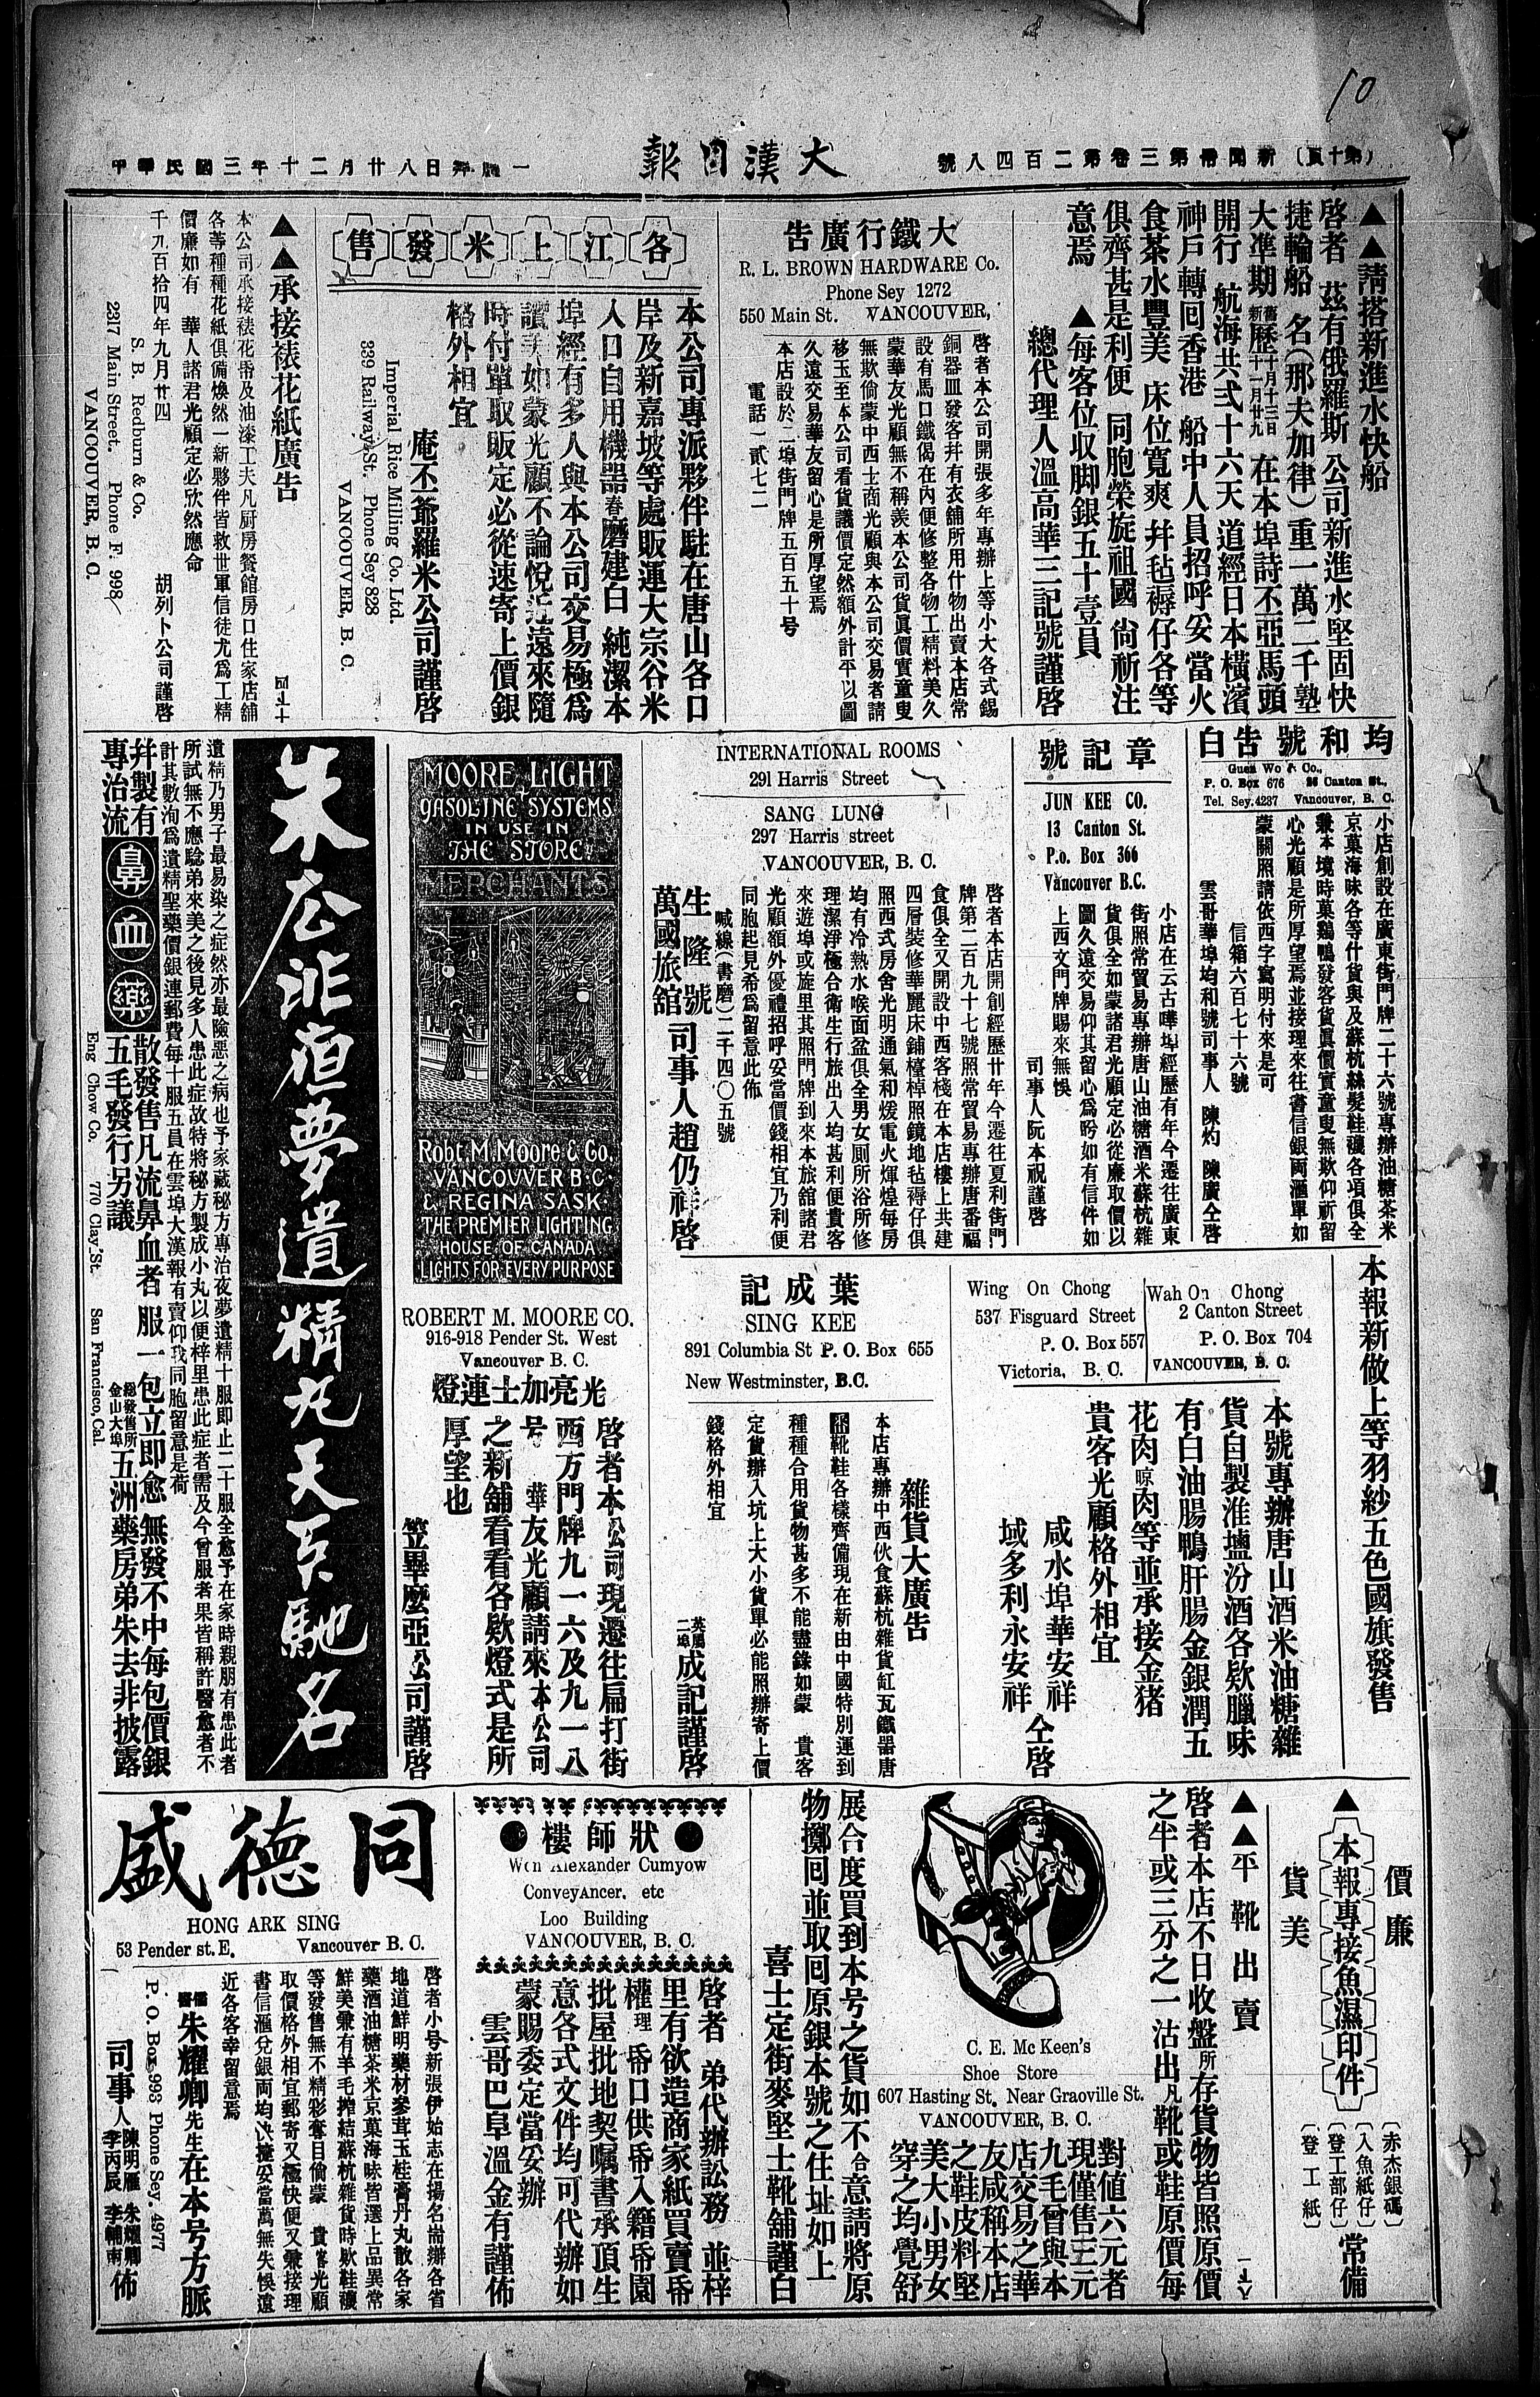 10
大漢日報
(第十頁) 新聞冊第三卷第二百四八號
中華民國三年十二月廿八日 拜一
▲▲請搭新進水快船
啓者 茲有俄羅斯 公司新進水堅固快
捷輪船 名(那夫加律)重一萬二千墊
開行 航海共弍十六天 道經日本橫濱
神戶轉囘香港 船中人員招呼妥當火
食茶水豐美 床位寬爽 并毡褥仔各等
俱齊甚是利便 同胞榮旋祖國 尙祈注
意焉 ▲每客位收脚銀五十壹員
總代理人溫高華三記號謹啓
大鐵行廣告
R. L. BROWN HARDWARE Co.
Phone Sey 1272
550 Main St. VANCOUVER,
啓者本公司開張多年專辦上等小大各式錫
銅器皿發客幷有衣舖所用什物出賣本店常
設有馬口鐵偈在內便修整各物工精料美久
蒙華友光顧無不稱羨本公司貨眞價實童叟
無欺倘蒙中西士商光顧與本公司交易者請
移玉至本公司看貨議價定然額外計平以圖
久遠交易華友留心是所厚望焉
本店設於二埠街門牌五百五十号
電話一貳七二
各江上米發售
本公司專派夥伴駐在唐山各口
岸及新嘉坡等處販運大宗谷米
入口自用機器舂磨建白 純潔本
埠經有多人與本公司交易極爲
時付單取販定必從速寄上價銀
格外相宜
庵丕爺羅米公司謹啓
Imperial Rice Milling Co. Ltd.
339 Railway St. Phone Sey 828
VANCOUVER, B. C.
▲▲承接裱花紙廣告
本公司承接裱花番及油漆工夫凡厨房餐館房口住家店舖
各等種種花紙俱備煥然一新夥伴皆救世軍信徒尤爲工精
價廉如有 華人諸君光顧定必欣然應命
千九百拾四年九月廿四 胡列卜公司謹啓
S. B. Redburn & Co.
2317 Main Street. Phone F. 998
VANCOUVER, B. C.
均和號告白
Guen Wo & Co.,
P. O. Box 676 26 Canton St.,
Tel. Sey.4237 Vancouver, B. C.
小店創設在廣東街門牌二十六號專辦油糖茶米
京菓海味各等什貨與及蘇杭絲髮鞋襪各項俱全
兼本境時菓鷄鴨發客貨眞價實童叟無欺仰祈留
心光顧是所厚望焉並接理來往書信銀両滙單如
蒙關照請依西字寫明付來是可
信箱六百七十六號
雲哥華埠均和號司事人 陳灼 陳廣仝啓
章記號
JUN KEE CO.
13 Canton St.
P.o. Box 366
Vancouver B.C.
小店在云古嘩埠經歷有年今遷往廣東
街照常貿易專辦唐山油糖酒米蘇杭雜
貨俱全如蒙諸君光顧定必從廉取價以
圖久遠交易仰其留心爲盼如有信件如
上西文門牌賜來無悞
司事人阮本祝謹啓
INTERNATIONAL ROOMS
291 Harris Street
SANG LUNG
297 Harris street
VANCOUVER, B. C.
啓者本店開創經歷廿年今遷往夏利街門
牌第二百九十七號照常貿易專辦唐番福
食俱全又開設中西客棧在本店樓上共建
四層裝修華麗床鋪檯椁照鏡地毡褥仔俱
照西式房舍光明通氣和煖電火煇煌每房
均有冷熱水喉面盆俱全男女厠所浴所修
理潔淨極合衛生行旅出入均甚利便貴客
來遊埠或旋里其照門牌到來本旅舘諸君
光顧額外優禮招呼妥當價錢相宜乃利便
同胞起見希爲留意此佈
喊線(書磨)二千四〇五號
生隆號
萬國旅舘 司事人趙仍祥啓
MOORE LIGHT
GASOLINE SYSTEMS
IN USE IN
THE STORE
MERCHANTS
Robt M. Moore & Co.
VANCOUVER B.C.
& REGINA SASK.
THE PREMIER LIGHTING
HOUSE OF CANADA
LIGHTS FOR EVERY PURPOSE
ROBERT M. MOORE CO.
916-918 Pender St. West
Vancouver B. C.
光亮加士連燈
啓者本公司現遷往扁打街
西方門牌九一六及九一八
号 華友光顧請來本公司
之新舖看看各欵燈式是所
厚望也
笠畢麼亞公司謹啓
朱広非洹夢遺精丸天下馳名
遺精乃男子最易染之症然亦最險惡之病也予家藏秘方專治夜夢遺精十服即止二十服全愈予在家時親朋有患此者
所試無不應騐弟來美之後見多人患此症故特將秘方製成小丸以便梓里患此症者需及今曾服者果皆稱許醫愈者不
計其數洵爲遺精聖藥價銀連郵費每十服五員在雲埠大漢報有賣仰我同胞留意是荷
并製有
專治流 鼻血藥 散發售凡流鼻血者 服一包立即愈 無發不中每包價銀
五毛發行另議 總發售所金山大埠五洲藥房弟朱去非披露
Eng Chow Co. 770 Clay St. San Francisco, Cal.
本報新做上等羽紗五色國旗發售
Wing On Chong
537 Fisguard Street
P. O. Box 557
Victoria, B. C.
Wah On Chong
2 Canton Street
P. O. Box 704
VANCOUVER, B. C.
本號專辦唐山酒米油糖雜
貨自製淮塩汾酒各欵臘味
有白油腸鴨肝腸金銀潤五
花肉晾肉等並承接金猪
貴客光顧格外相宜
咸水埠華安祥
域多利永安祥 仝啓
葉成記
SING KEE
891 Columbia St P. O. Box 655
New Westminster, B.C.
雜貨大廣告
本店專辦中西伙食蘇杭雜貨缸瓦鐵器唐
靴鞋各樣齊備現在新由中國特別運到
種種合用貨物甚多不能盡錄如蒙 貴客
定貨辦入坑上大小貨單必能照辦寄上價
錢格外相宜
英屬二埠成記謹啓
價廉
貨美
▲本報專接魚濕印件
赤杰銀碼
入魚紙仔
登工部仔
登工紙
常備
▲▲平靴出賣
啓者本店不日收盤所存貨物皆照原價
之半或三分之一沽出凡靴或鞋原價每
對值六元者
現僅售三元
九毛曾與本
店交易之華
友咸稱本店
之鞋皮料堅
美大小男女
穿之均覺舒
C. E. Mc Keen's
Shoe Store
607 Hasting St. Near Graoville St.
VANCOUVER, B. C.
展合度買到本号之貨如不合意請將原
物擲囘並取囘原銀本號之住址如上
喜士定街麥堅士靴舖謹白
狀師樓
Won Alexander Cumyow
ConveyAncer, etc
Loo Building
VANCOUVER, B. C.
啓者 弟代辦訟務 並梓
里有欲造商家紙買賣帋
權理 帋口供帋入籍帋園
批屋批地契嘱書承頂生
意各式文件均可代辦如
蒙賜委定當妥辦
雲哥巴阜溫金有謹佈
同德盛
HONG ARK SING
53 Pender st. E. Vancouver B. C.
啓者小号新張伊始志在揚名耑辦各省
地道鮮明藥材參茸玉桂膏丹丸散各家
藥酒油糖茶米京菓海味皆選上品異常
鮮美兼有羊毛搾結蘇杭雜貨時欵鞋襪
等發售無不精彩奪目倘蒙 貴客光顧
取價格外相宜郵寄又極快便又兼接理
書信滙兌銀両均快捷妥當萬無失悞遠
近各客幸留意焉
儒醫朱耀卿先生在本号方脈
P. O. Box 993 Phone Sey. 4977
司事人 陳明雁 朱耀卿 李丙辰 李輔南 佈